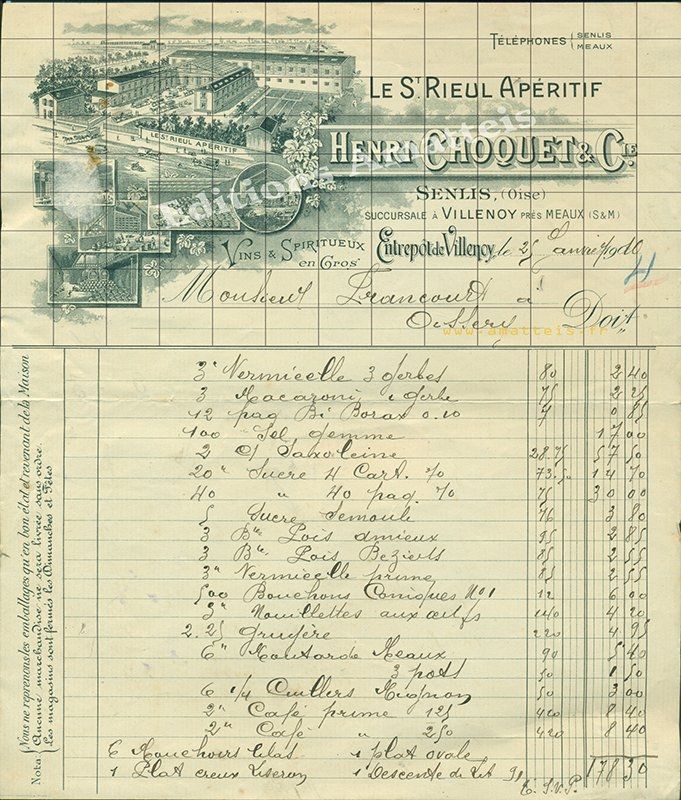 TÉLÉPHONES { SENLIS
MEAUX
LE ST RIEUL APÉRITIF
LE ST RIEUL APERITIF
HENRI CHOQUET & CIE
SENLIS, (Oise)
SUCCURSALE À VILLENOY PRÈS MEAUX (S & M)
VINS & SPIRITUEUX
en Gros
Entrepôt de Villenoy, le 25 Janvier 1910
4
Monsieur Francourt à
Oissery Doit
Editions Amatteis
www.amatteis.fr
3" Vermicelle 3 gerbes 80 2 40
3 Macaroni 1 gerbe 75 2 25
12 paq Bi Borax 0.10 7 0 85
100 Sel gemme 17 00
2 c/ Saxoleine 28.75 57 50
20" Sucre 4 Cart. 70 73.50 14 70
40 " 40 paq. 70 75 30 00
5 Sucre Semoule 76 3 80
3 Btes Pois amieux 95 2 85
3 Btes Pois Beziers 85 2 55
3" Vermicelle prime 85 2 55
500 Bouchons Coniques No 1 12 6 00
3" Nouillettes aux œufs 140 4 20
2.25 gruyère 220 4 95
6" Moutarde Meaux 90 5 40
3 pots 50 1 50
6 1/4 Cuillers Mignon 50 3 00
2" Café prime 125 420 8 40
2" Café " 250 420 8 40
6 Mouchoirs lilas 1 plat ovale
1 Plat creux Liseron 1 Descente de Lit 178 30
T. S. V. P.
Nota: Nous ne reprenons les emballages qu'en bon état et revenant de la Maison
Aucune marchandise ne sera livrée sans ordre.
Les magasins sont fermés les Dimanches et Fêtes